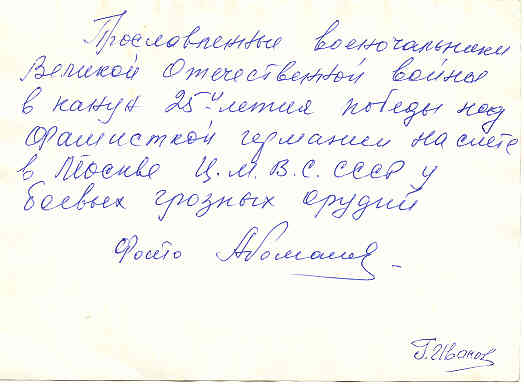 Прославленные военочальники
Великой Отечественной войны
в канун 25-и летия победы над
фашисткой германии на слете
в Москве Ц.М.В.С. СССР у
боевых грозных орудий
Фото
Г. Иванов